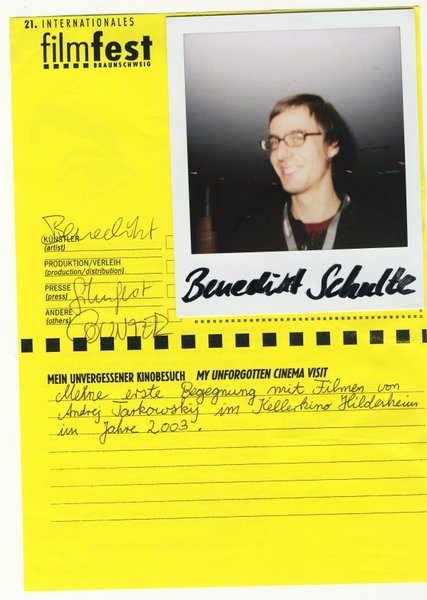 21. INTERNATIONALES
filmfest
BRAUNSCHWEIG
Benedikt
KÜNSTLER
(artist)
PRODUKTION/VERLEIH
(production/distribution)
PRESSE
(press)
Filmfest
ANDERE
(others)
COUNTER
Benedikt Schulte
MEIN UNVERGESSENER KINOBESUCH MY UNFORGOTTEN CINEMA VISIT
Meine erste Begegnung mit Filmen von
Andrej Tarkowskij im Kellerkino Hildesheim
im Jahre 2003.